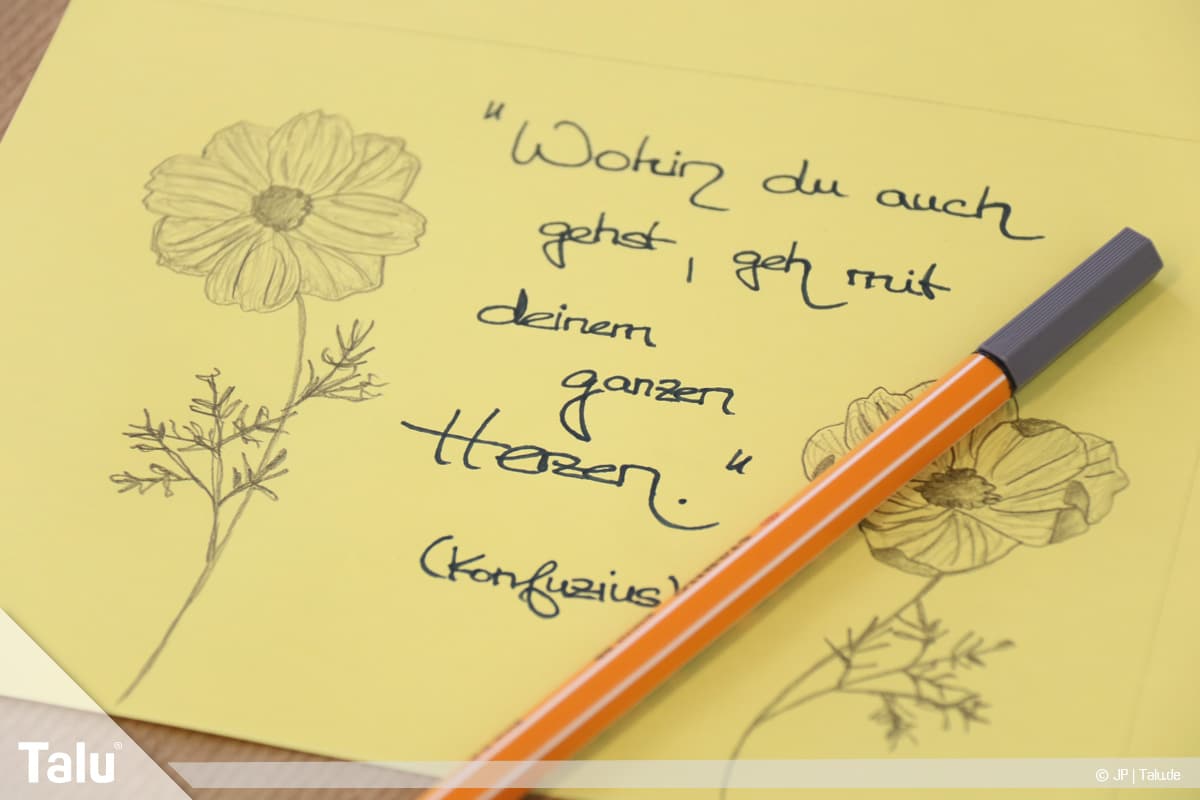 "Wohin du auch
gehst, geh mit
deinem
ganzen
Herzen."
(Konfuzius)
Talu®
© JP | Talu.de